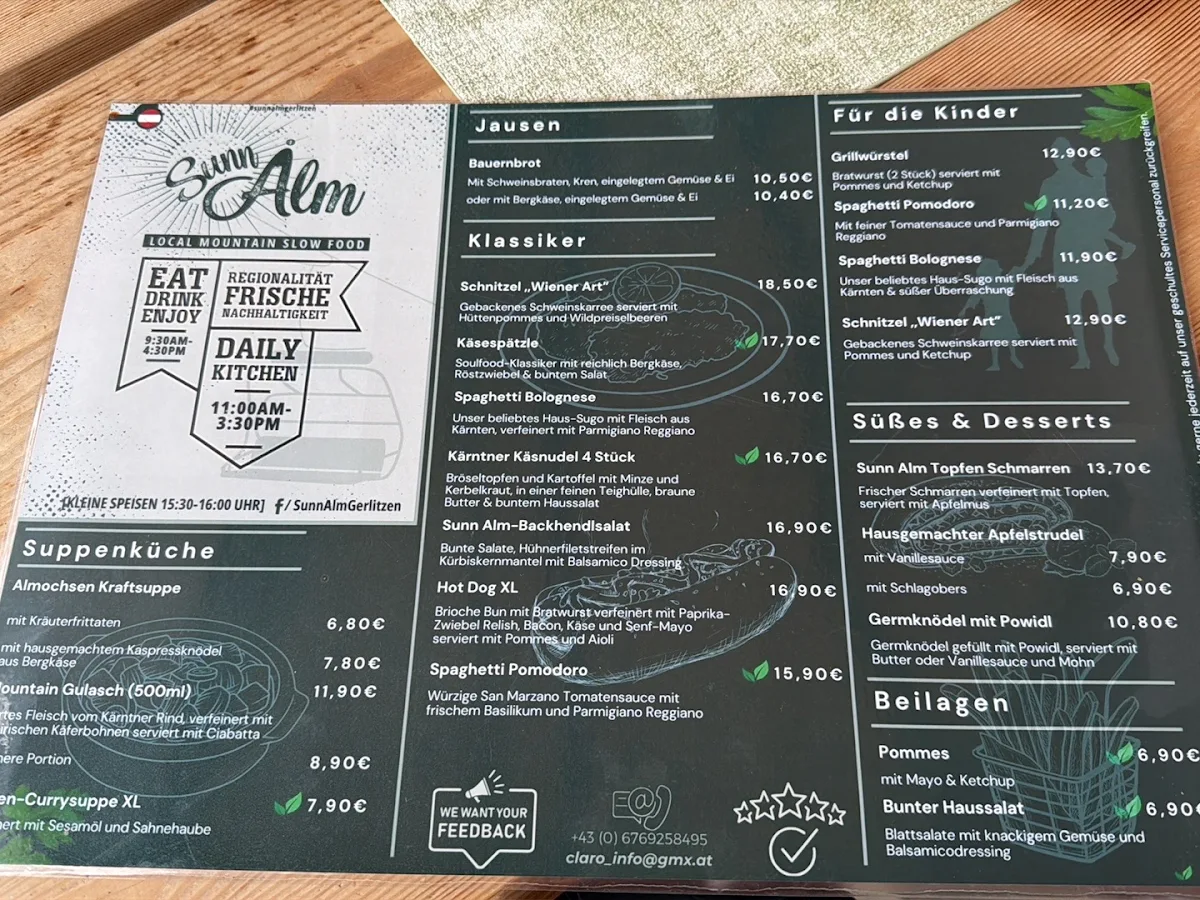 #sunnalmgerlitzen
Sunn Alm
LOCAL MOUNTAIN SLOW FOOD
EAT
DRINK
ENJOY
9:30AM-
4:30PM
REGIONALITÄT
FRISCHE
NACHHALTIGKEIT
DAILY
KITCHEN
11:00AM-
3:30PM
[KLEINE SPEISEN 15:30-16:00 UHR] f/SunnAlmGerlitzen
Suppenküche
Almochsen Kraftsuppe
mit Kräuterfrittaten 6,80€
mit hausgemachtem Kaspressknödel
aus Bergkäse 7,80€
Mountain Gulasch (500ml) 11,90€
Fleisch vom Kärntner Rind, verfeinert mit
Käferbohnen serviert mit Ciabatta
Portion 8,90€
Currysuppe XL 7,90€
mit Sesamöl und Sahnehaube
Jausen
Bauernbrot
Mit Schweinsbraten, Kren, eingelegtem Gemüse & Ei 10,50€
oder mit Bergkäse, eingelegtem Gemüse & Ei 10,40€
Klassiker
Schnitzel „Wiener Art“ 18,50€
Gebackenes Schweinskarree serviert mit
Hüttenpommes und Wildpreiselbeeren
Käsespätzle 17,70€
Soulfood-Klassiker mit reichlich Bergkäse,
Röstzwiebel & buntem Salat
Spaghetti Bolognese 16,70€
Unser beliebtes Haus-Sugo mit Fleisch aus
Kärnten, verfeinert mit Parmigiano Reggiano
Kärntner Käsnudel 4 Stück 16,70€
Bröseltopfen und Kartoffel mit Minze und
Kerbelkraut, in einer feinen Teighülle, braune
Butter & buntem Haussalat
Sunn Alm-Backhendlsalat 16,90€
Bunte Salate, Hühnerfiletstreifen im
Kürbiskernmantel mit Balsamico Dressing
Hot Dog XL 16,90€
Brioche Bun mit Bratwurst verfeinert mit Paprika-
Zwiebel Relish, Bacon, Käse und Senf-Mayo
serviert mit Pommes und Aioli
Spaghetti Pomodoro 15,90€
Würzige San Marzano Tomatensauce mit
frischem Basilikum und Parmigiano Reggiano
WE WANT YOUR
FEEDBACK
+43 (0) 6769258495
claro_info@gmx.at
Für die Kinder
Grillwürstel 12,90€
Bratwurst (2 Stück) serviert mit
Pommes und Ketchup
Spaghetti Pomodoro 11,20€
Mit feiner Tomatensauce und Parmigiano
Reggiano
Spaghetti Bolognese 11,90€
Unser beliebtes Haus-Sugo mit Fleisch aus
Kärnten & süßer Überraschung
Schnitzel „Wiener Art“ 12,90€
Gebackenes Schweinskarree serviert mit
Pommes und Ketchup
Süßes & Desserts
Sunn Alm Topfen Schmarren 13,70€
Frischer Schmarren verfeinert mit Topfen,
serviert mit Apfelmus
Hausgemachter Apfelstrudel
mit Vanillesauce 7,90€
mit Schlagobers 6,90€
Germknödel mit Powidl 10,80€
Germknödel gefüllt mit Powidl, serviert mit
Butter oder Vanillesauce und Mohn
Beilagen
Pommes 6,90€
mit Mayo & Ketchup
Bunter Haussalat 6,90
Blattsalate mit knackigem Gemüse und
Balsamicodressing
gerne jederzeit auf unser geschultes Servicepersonal zurückgreifen.